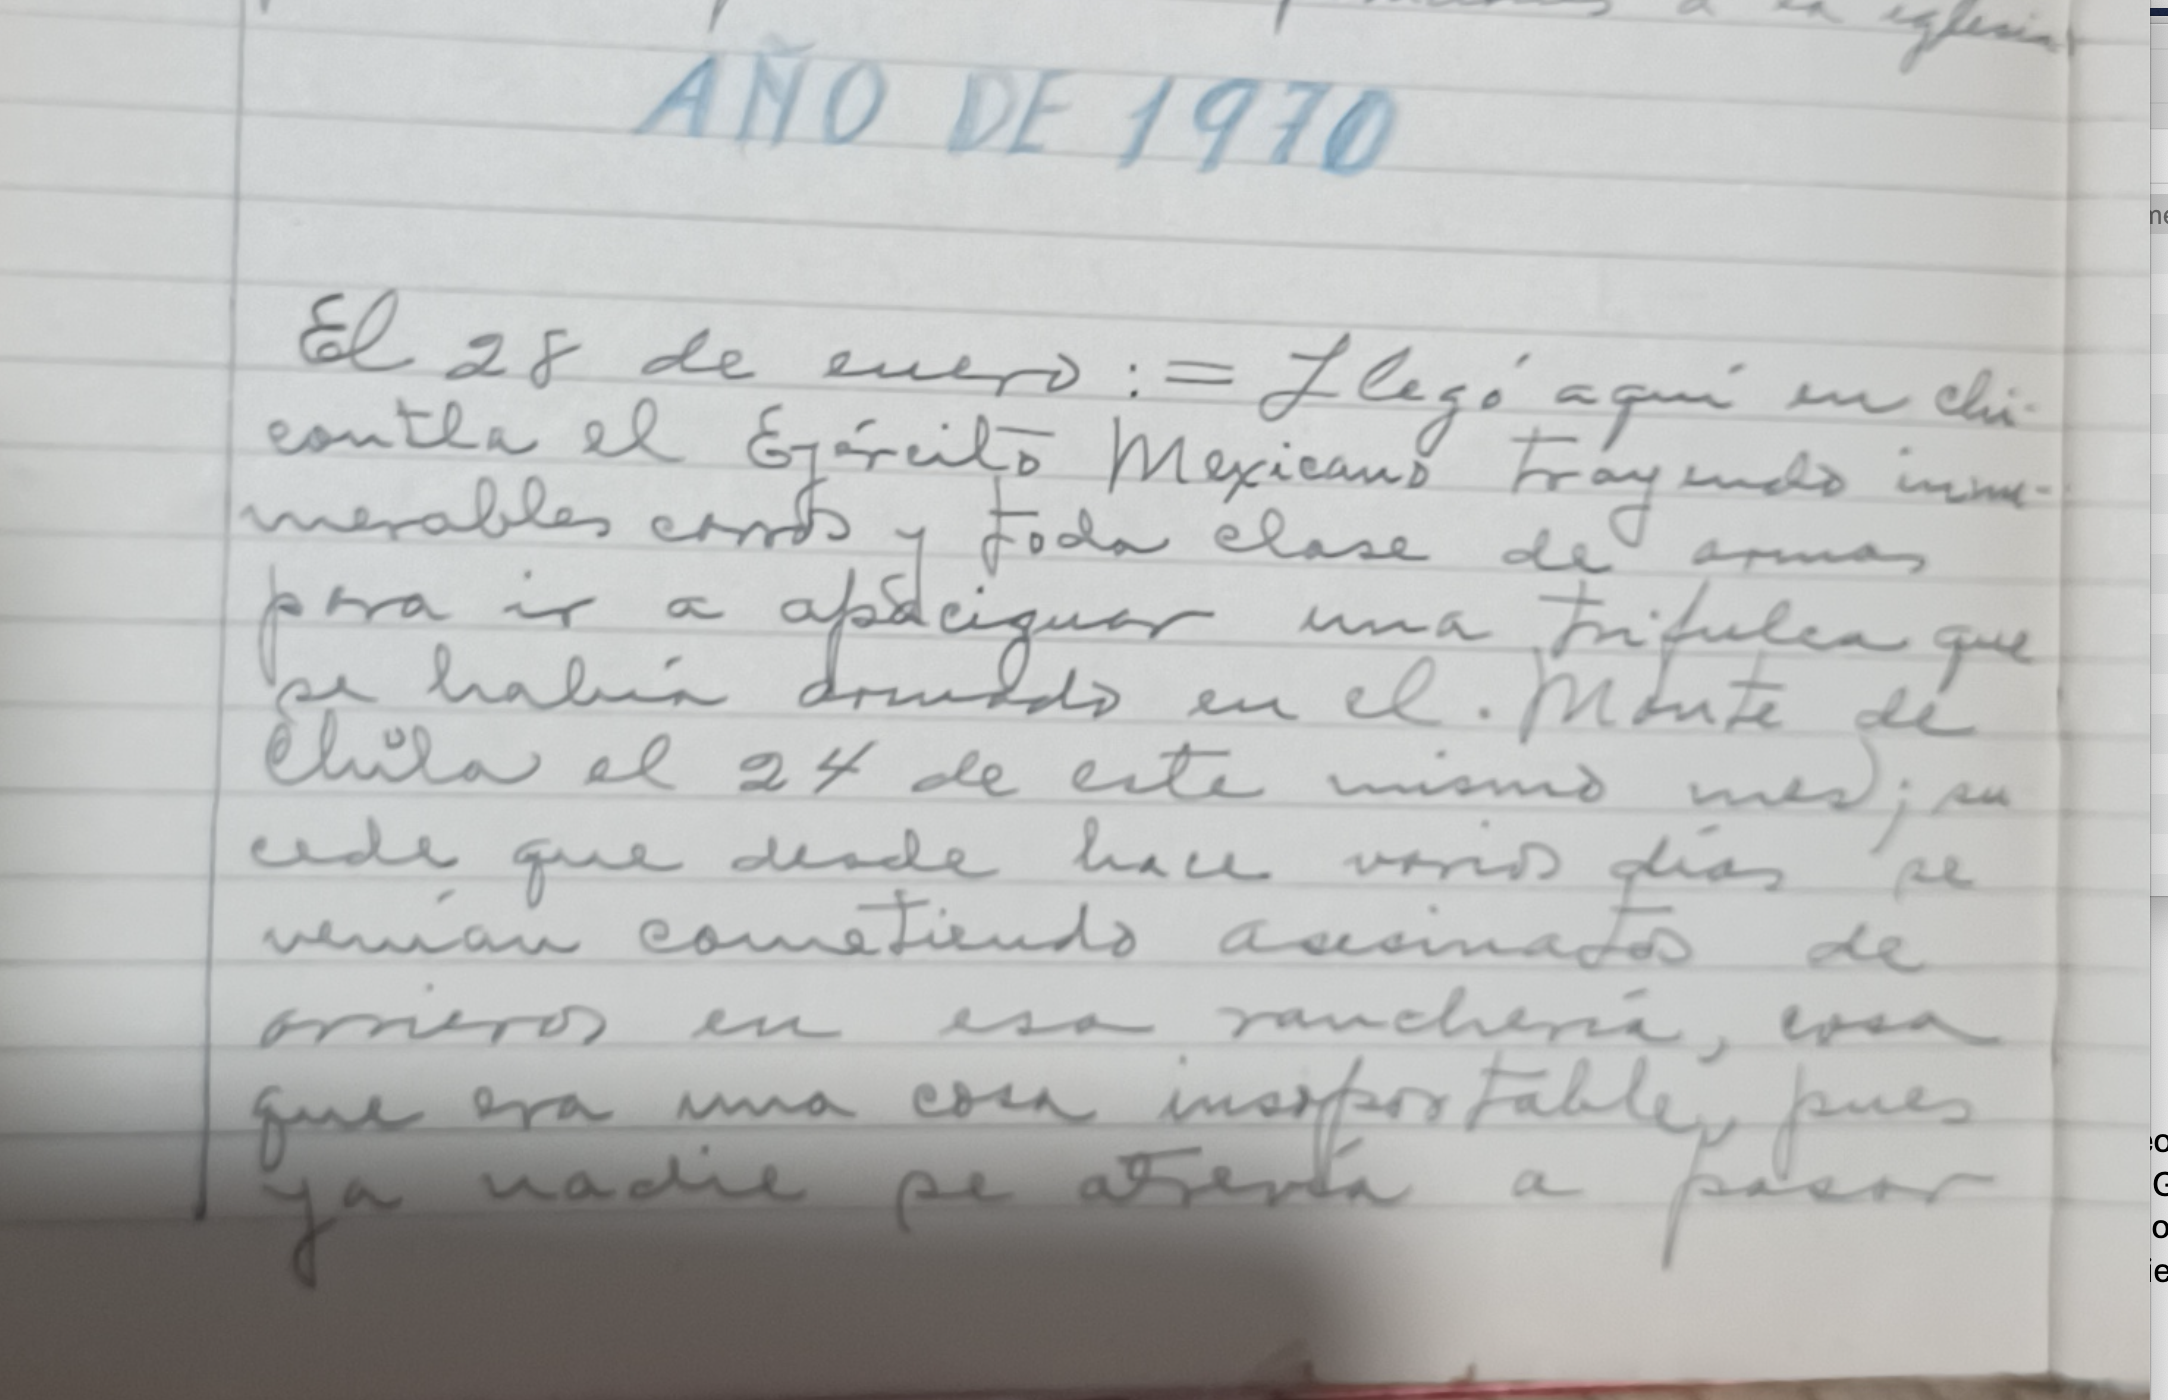 a la iglesia
AÑO DE 1970
El 28 de enero := Llegó aquí en chi-
contla el Ejército Mexicano trayendo innu-
merables carros y toda clase de armas
para ir a apaciguar una trifulca que
se había armado en el. Monte de
Chila el 24 de este mismo mes; su
cede que desde hace varios días se
venían cometiendo asesinatos de
arrieros en esa ranchería, cosa
que era una cosa insoportable, pues
ya nadie se atrevía a pasar